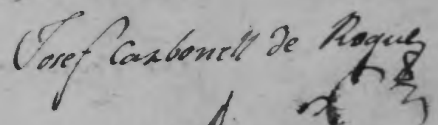 Josef Carbonell de Roque